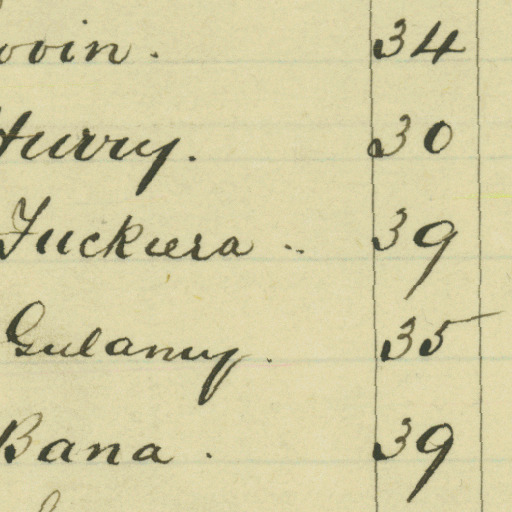 ovin. 34
Hurry. 30
Fuckeera .. 39
Gulamy. 35
Bana. 39